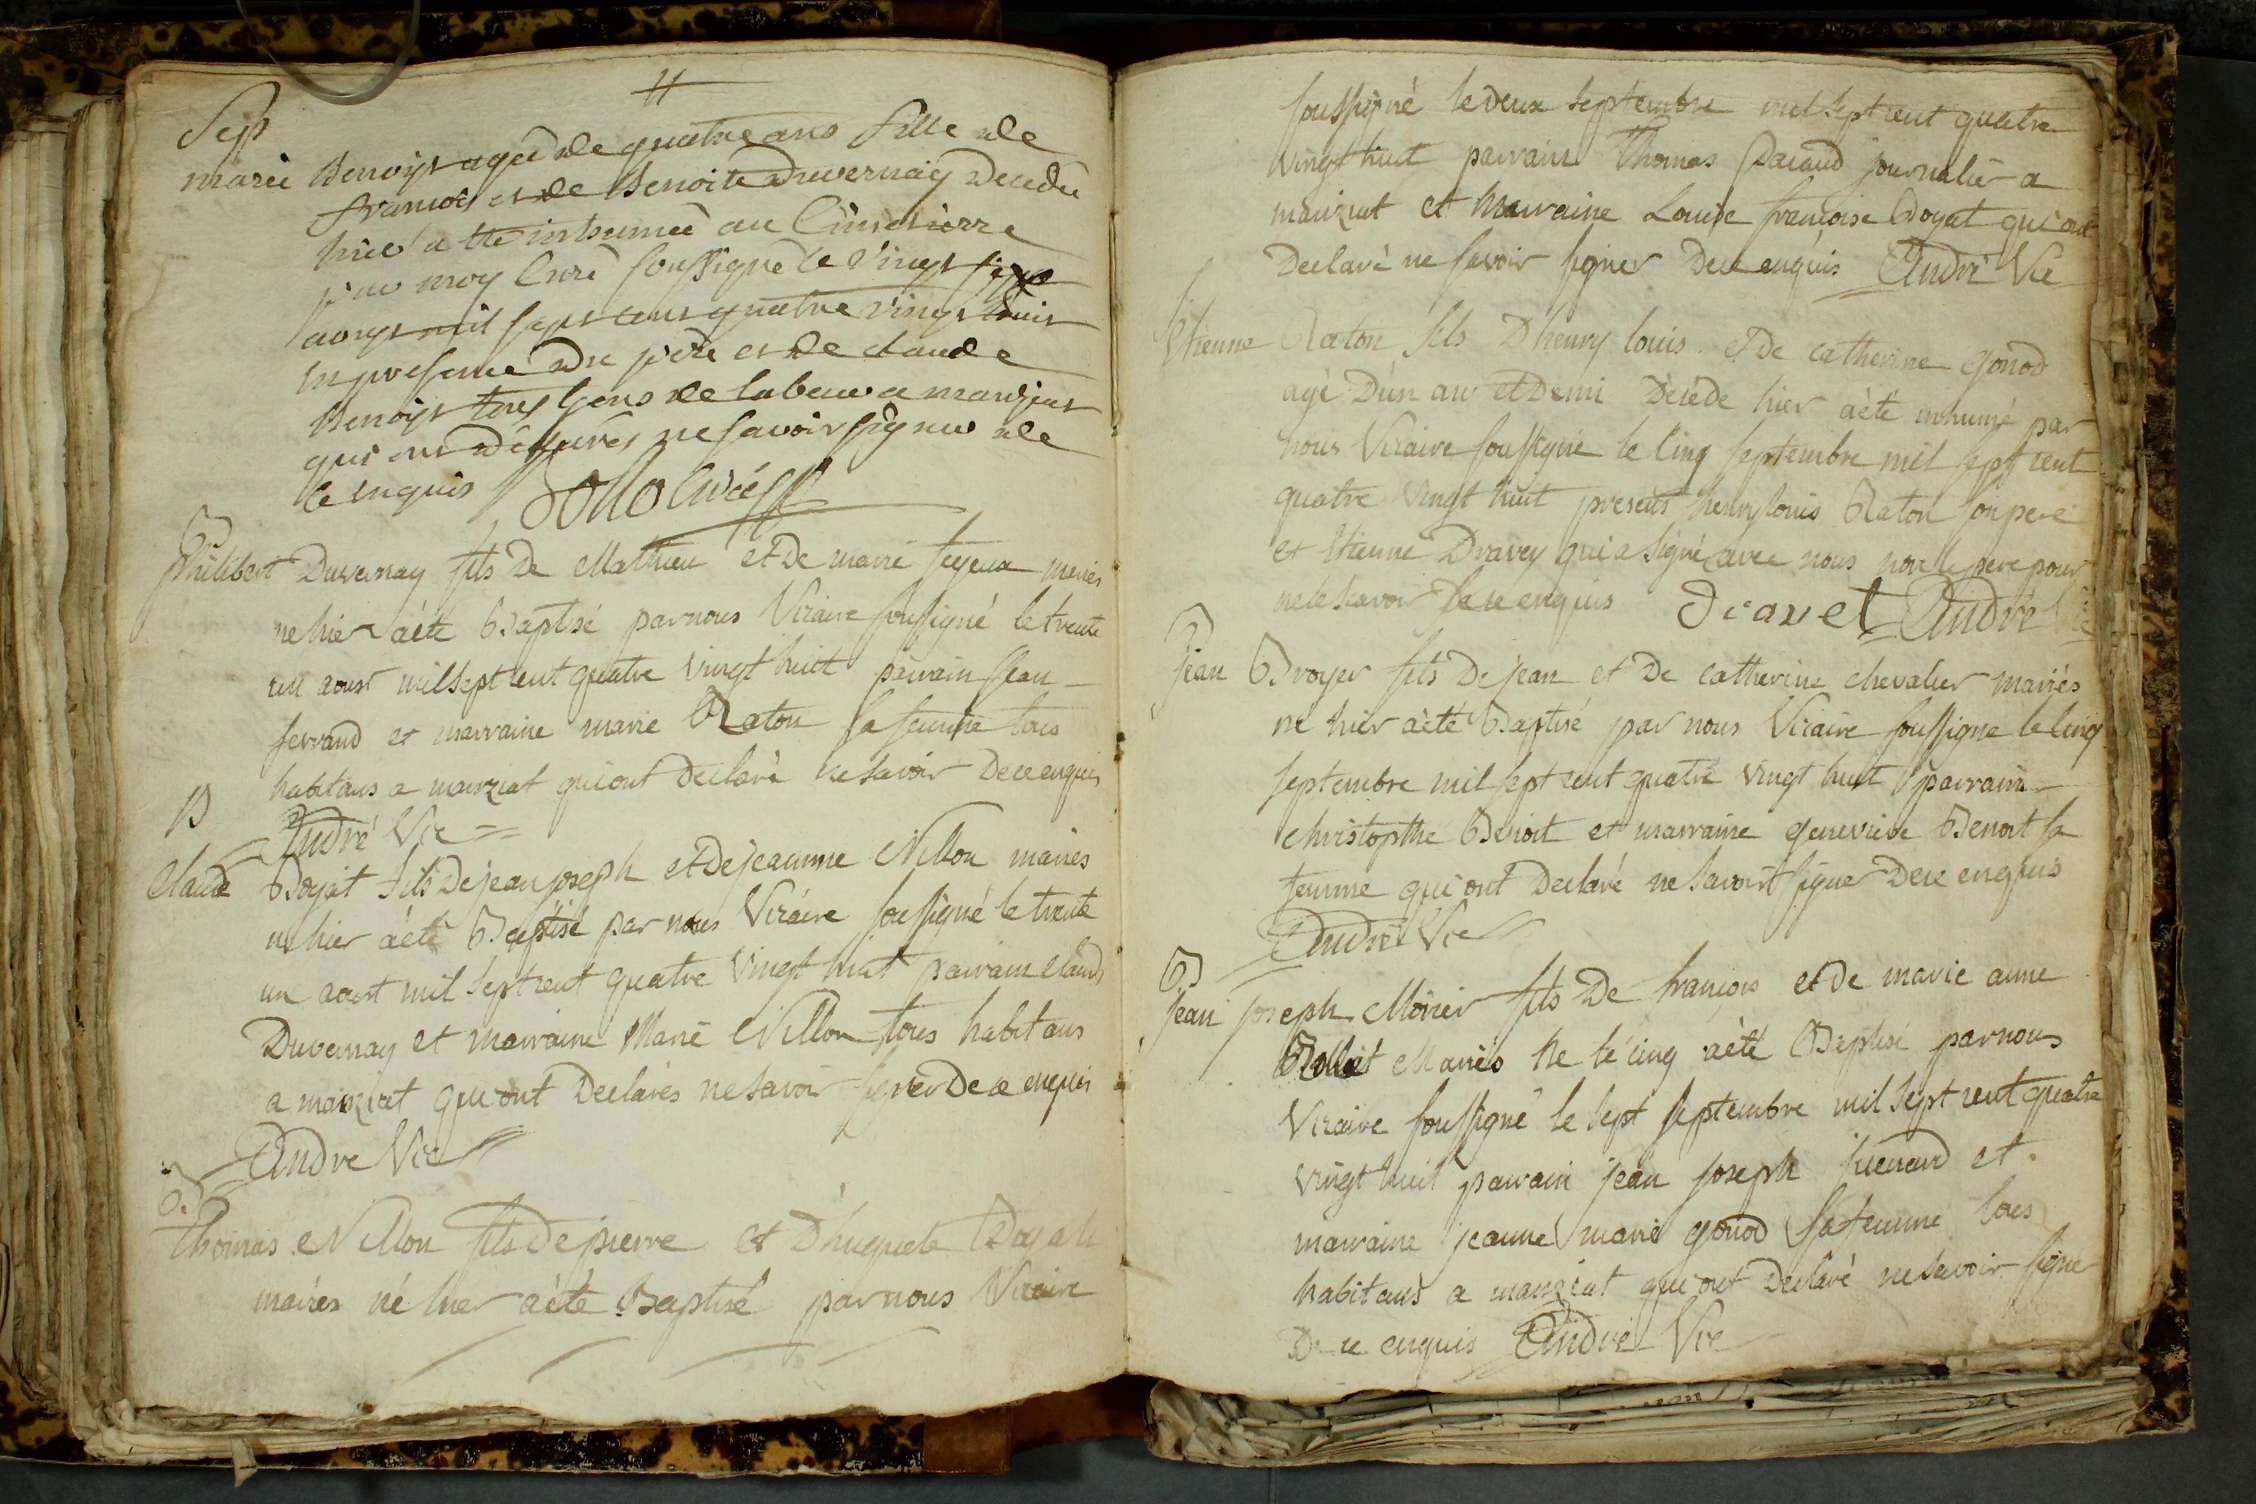 Sep
marie Benoist agée de quatre ans fille de
francois et de Benoite Duvernay decedée
hier a ete inhumée au Cimetierre
par moy Curé soussigné le vingt sept
aoust mil sept cent quatre vingt huit
en presence du père et de claude
Benoist tous gens de labeur a manziat
qui ont déclarés ne savoir signer de
ce enquis
B
philibert Duvernay fils de Mathieu et de marie feyeux mariés
ne hier aété Baptisé par nous Vicaire soussigné le trente
un aoust mil sept cent quatre vingt huit parrain jean
ferrand et marraine marie Raton sa femme tous
habitans a manziat qui ont declaré ne savoir de ce enquis
André Vic
B
Claude Boyat fils de jean joseph et de jeanne Nillon mariés
ne hier aété Baptisé par nous Vicaire soussigné le trente
un aoust mil sept cent quatre vingt huit parrain claude
Duvernay et marraine Marie Nillon tous habitans
a manziat qui ont declarés ne savoir signer de ce enquis
André Vic
B
thomas Nillon fils de pierre et d'huguete Boyat
mariés né hier aété Baptisé par nous Vicaire
soussigné le deux septembre mil sept cent quatre
vingt huit parrain Thomas Pacaud journalier a
manziat et marraine Louise francoise Boyat qui ont
Declaré ne savoir signer De ce enquis André Vic
Etienne Raton fils D'henry louis et de catherine gonod
agé D'un an et Demi Décédé hier aété inhumé par
nous Vicaire soussigné le Cinq septembre mil sept cent
quatre vingt huit presents henry louis Raton son pere
et Etienne Dravey qui a signé avec nous non le pere pour
ne le scavoir De ce enquis Dravet André Vic
B
jean Broyer fils De jean et De catherine chevalier mariés
né hier aété Baptisé par nous Vicaire soussigné le Cinq
septembre mil sept cent quatre vingt huit parrain
christophe Benoit et marraine genevieve Benoit sa
femme qui ont Declaré ne savoir signer De ce enquis
André Vic
B
jean joseph Morier fils De françois et de marie anne
Rollet Mariés né le cinq aété Baptisé par nous
Vicaire soussigné le sept septembre mil sept cent quatre
vingt huit parrain jean joseph et
marraine jeanne marie gonod sa femme tous
habitans a manziat qui ont Declaré ne savoir signer
De ce enquis André Vic